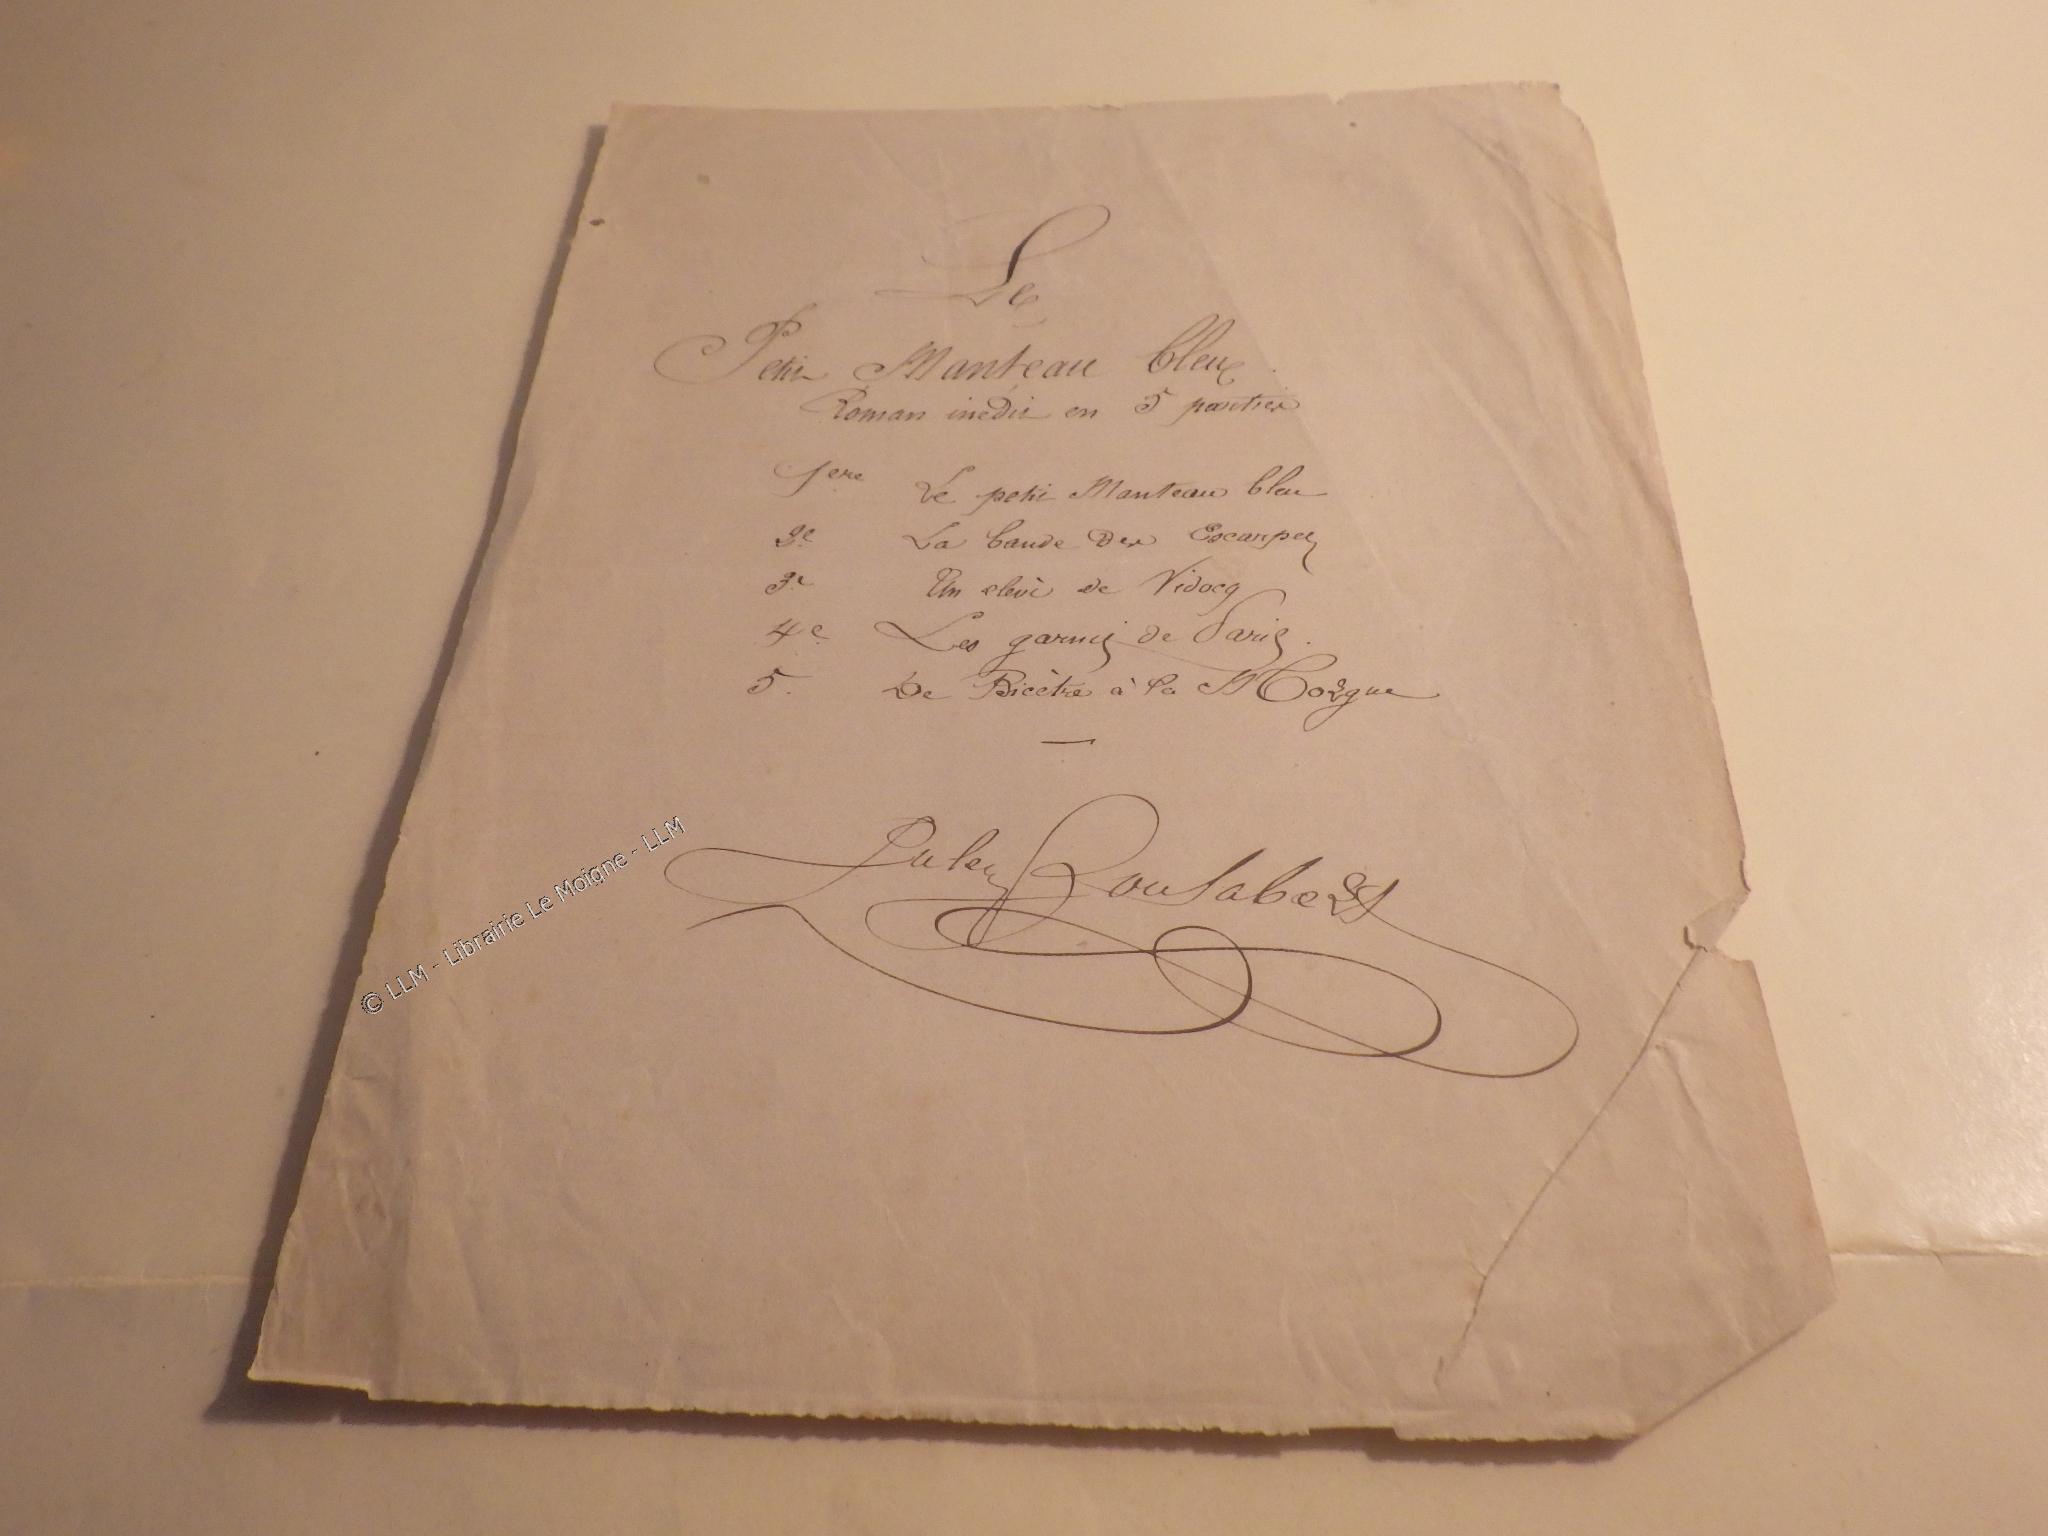 Le
Petit Manteau bleu.
Roman inédit en 5 parties
1ere Le petit Manteau bleu
2e La bande des Escarpes
3e Un elève de Vidocq
4e Les garnis de Paris.
5. De Bicêtre à la Morgue
Jules Boulabert
© LLM - Librairie Le Moigne - LLM